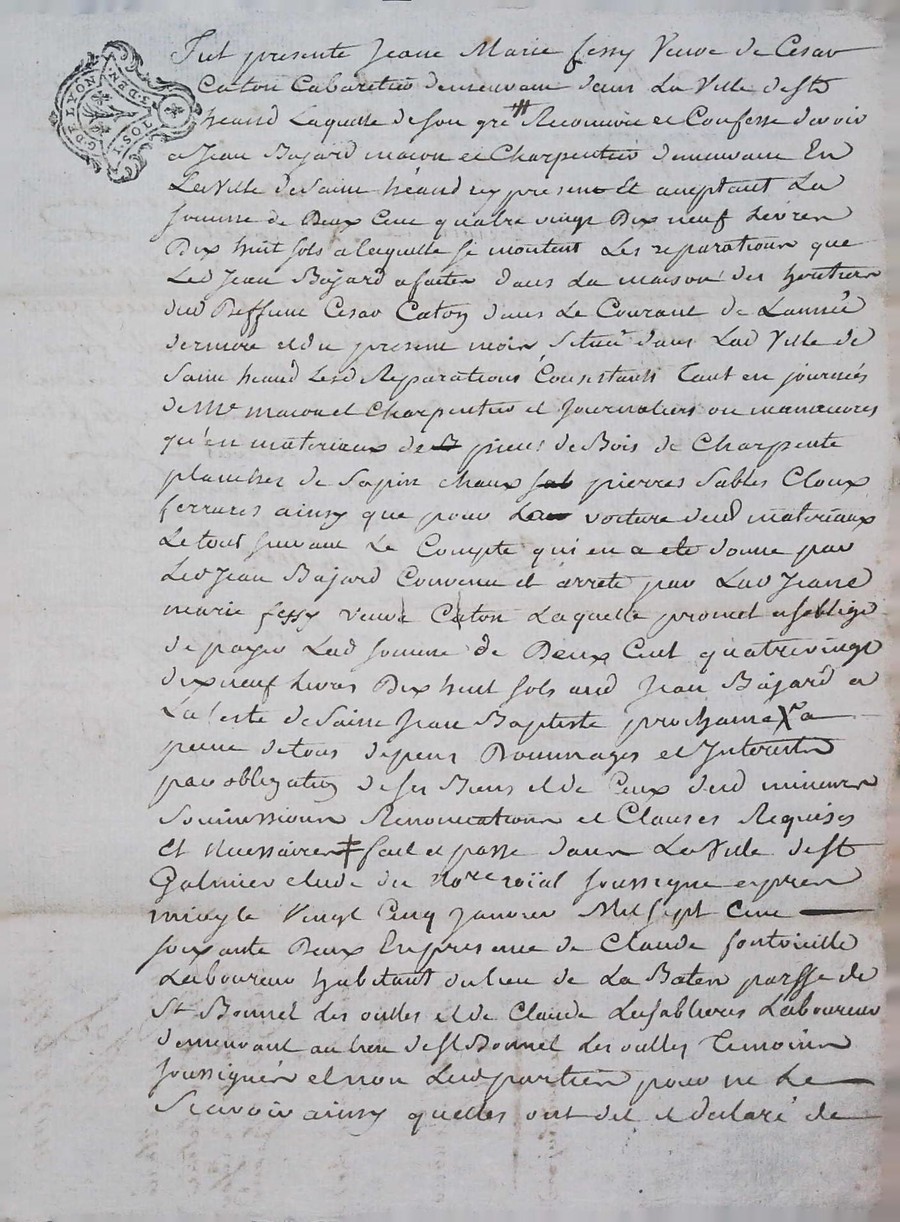 G DE LYON
2 S DE D N
Fut presente Jeane Marie fessy Veuve de Cesar
Caton Cabaretier demeurant dans La Ville de St
heand Laquelle de son gré Reconnoit et Confesse devoir
a Jean Bajard macon et Charpentier demeurant En
La Ville de Saint héand icy present Et aceptant La
somme de Deux Cent quatre vingt Dix neuf Livres
Dix huit sols a laquelle se montent Les reparations que
Led Jean Bajard a faites dans La maison des heritiers
dud Deffunt Cesar Caton dans Le Courant de Lannée
derniere et du present mois, Situé dans Lad Ville de
Saint heand Lesd Reparations Consistants Tant en journés
de Mes macon et Charpentier et Journaliers ou manœuvres
qu'en materiaux de pieces de Bois de Charpente
planches de Sapin chaux pierres Sables Cloux
ferrures ainsy que pour voiture desd materiaux
Le tout suivant Le Compte qui en a eté donné par
Led Jean Bajard Convenu et arreté par Lad Jeane
marie fessy veuve Caton Laquelle promet et soblige
de payer Lad somme de Deux Cent quatrevingt
dix neuf Livres Dix huit sols aud Jean Bajard a
La feste de Saint Jean Baptiste prochaine X a
peine de tous depens Dommages et Interests
par obligation de ses Biens et de Ceux desd mineurs
Soumissions Renonciations et Clauses Requises
Et necessaires ‡ fait et passé dans La Ville de St
Galmier etude du nore roïal soussigné apres
midy le Vingt Cinq Janvier Mil sept Cent
soixante Deux En presence de Claude fontvieille
Laboureur habitant du lieu de La Baten parsse de
St Bonnet Les oulles et de Claude Lesablieres Laboureur
demeurant au lieu de St Bonnet Les oulles Temoins
soussignés et non Lesd parties pour ne Le
Scavoir ainsy quelles ont dit et declaré de